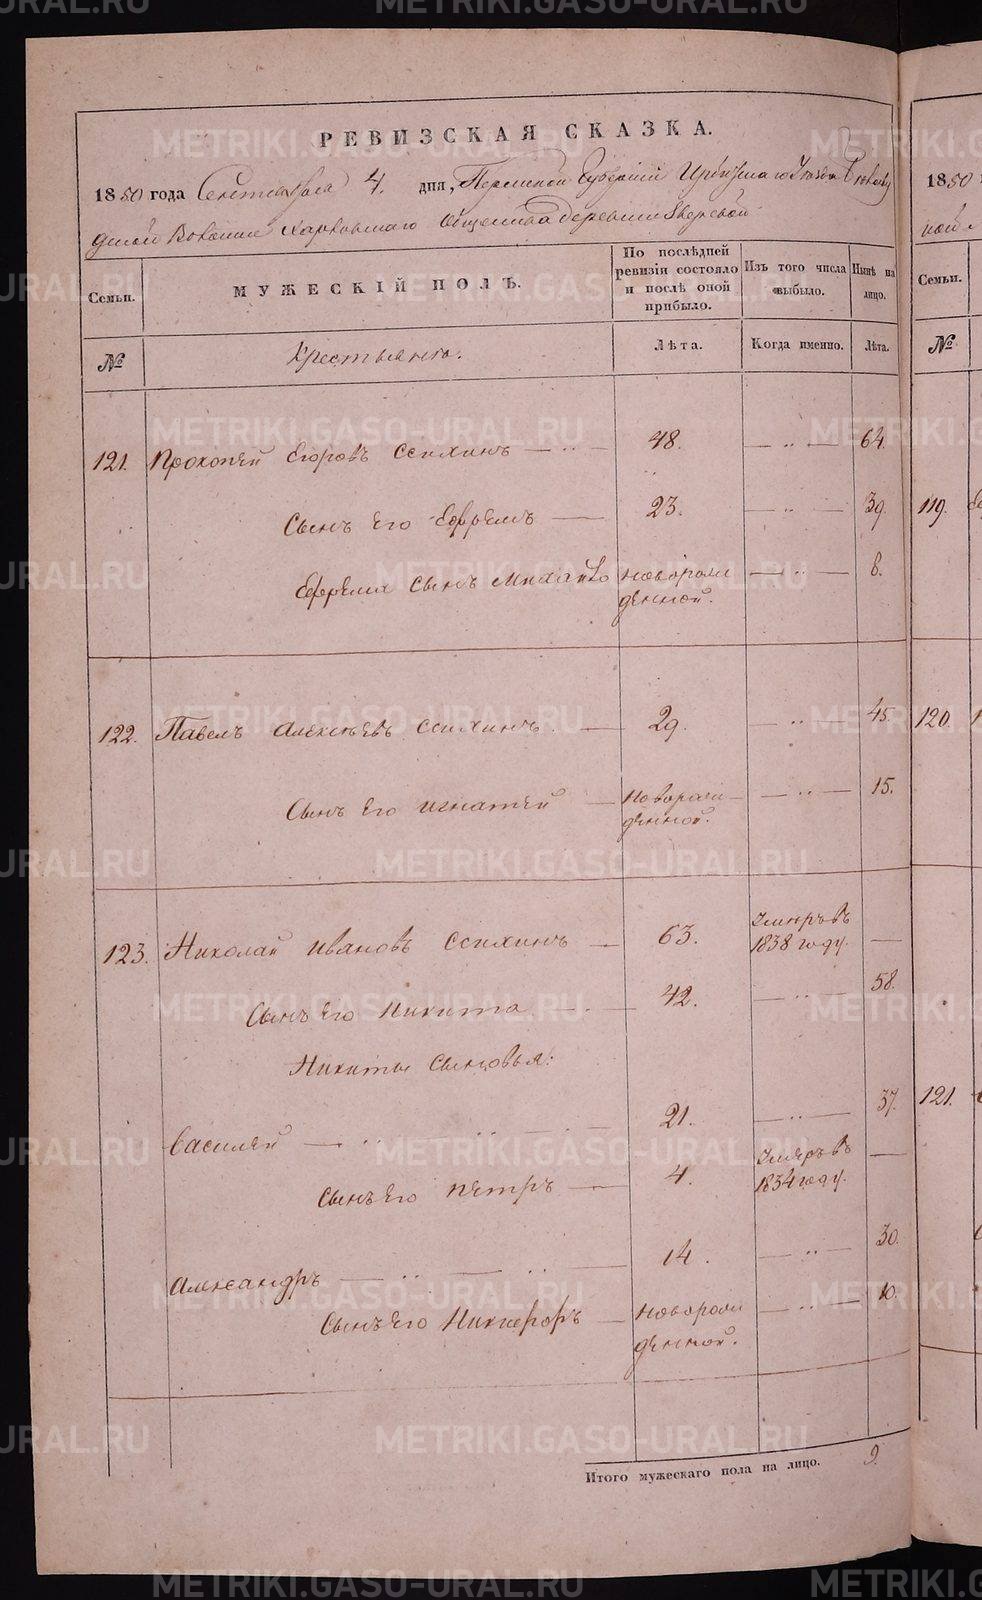 METRIKI.GASO-URAL.RU
РЕВИЗСКАЯ СКАЗКА.
1850 года Сентября 4. дня, Пермской Губернии Ирбитскаго Уезда
Волости Харловскаго Общества Деревни Зверевой
Семьи.
МУЖЕСКІЙ ПОЛЪ.
По послѣдней ревизіи состояло и послѣ оной прибыло.
Изъ того числа выбыло.
Нынѣ на лицо.
№
Крестьяне.
Лѣта.
Когда именно.
Лѣта.
121. Прокопей Егоровъ Ссихинъ — 48. — 64.
Сынъ его Ефремъ — 23. — 39.
Ефрема сынъ Михайло новорожденной. — 8.
122. Павелъ Алексѣевъ Ссихинъ — 29. — 45.
Сынъ его Игнатей — Новорожденной. — 15.
123. Николай Ивановъ Ссихинъ — 63. Умеръ въ 1838 году. —
Сынъ его Никита — 42. — 58.
Никиты сыновья:
Василей — 21. — 37.
Сынъ его Петръ — 4. Умеръ въ 1834 году. —
Александръ — 14. — 30.
Сынъ его Никифоръ — Новорожденной. — 10.
Итого мужескаго пола на лицо. 9.
1850
Семьи.
№
119.
120.
121.